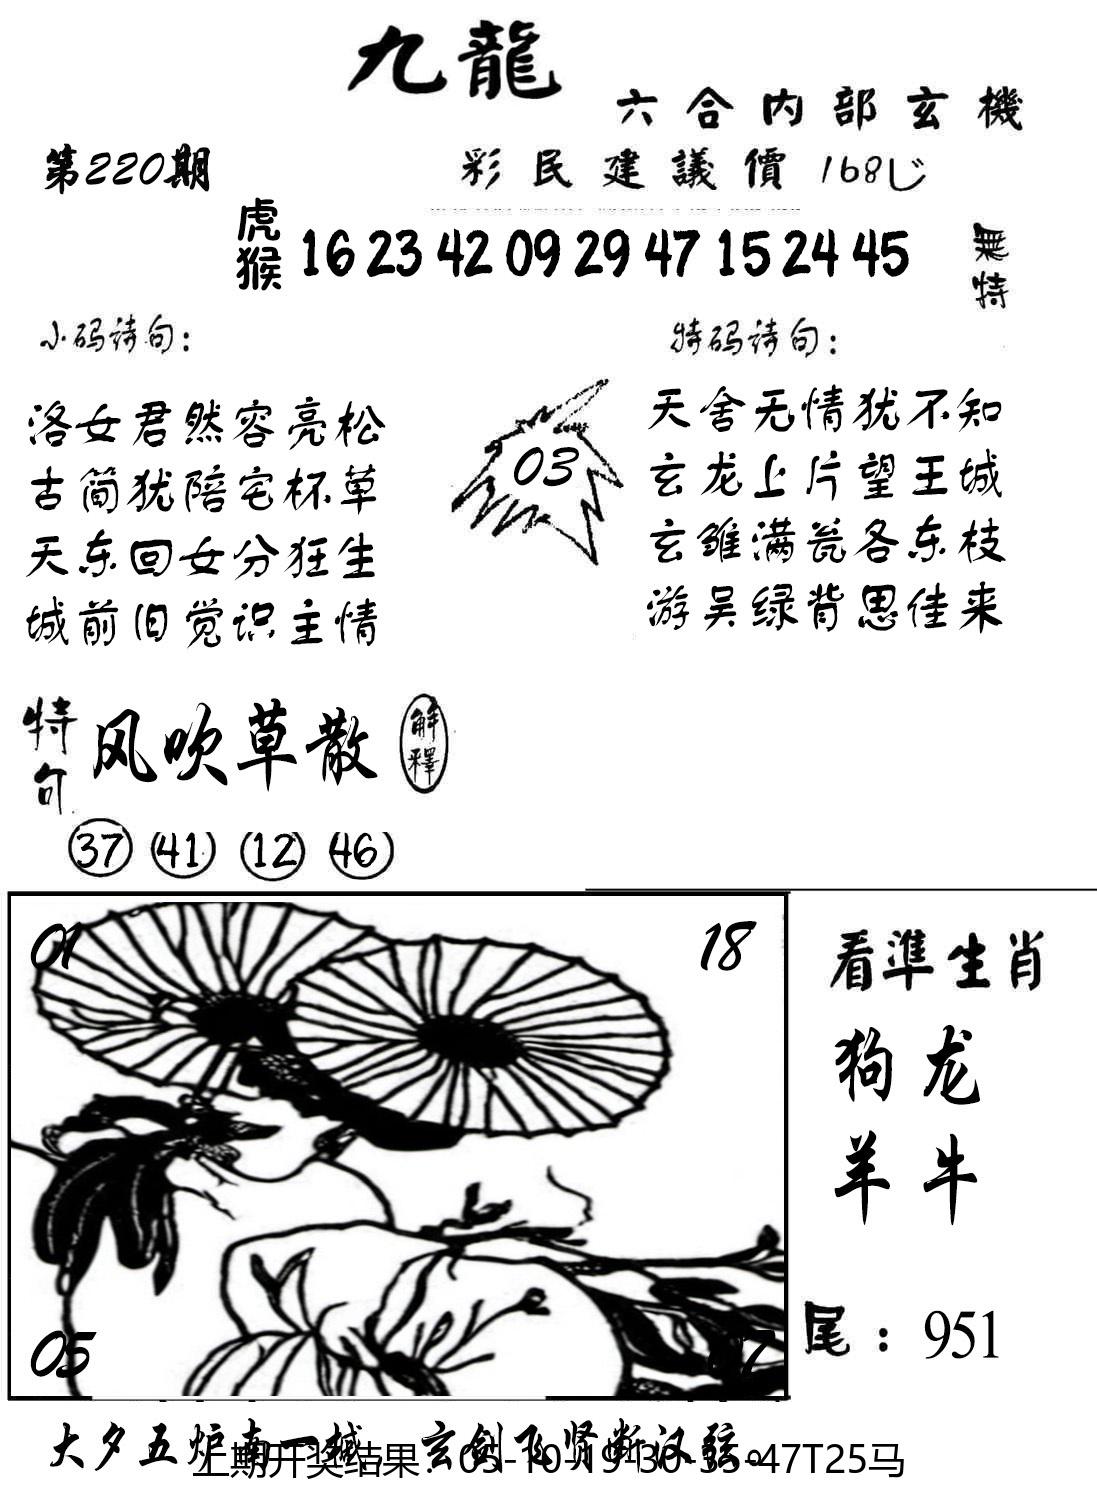 九龍
六合内部玄機
第220期
彩民建議價168
虎猴
16 23 42 09 29 47 15 24 45
無特
小码诗句：
特码诗句：
洛女君然容亮松
古简犹陪宅杯草
天东回女分狂生
城前旧觉识主情
03
天舍无情犹不知
玄龙上片望王城
玄雏满瓮各东枝
游吴绿背思佳来
特句
风吹草散
解釋
37 41 12 46
01
18
05
看準生肖
狗龙
羊牛
尾：951
大夕五炉南一城 玄剑飞贤断汉弦。
上期开奖结果：05-10-19-30-35-47T25马